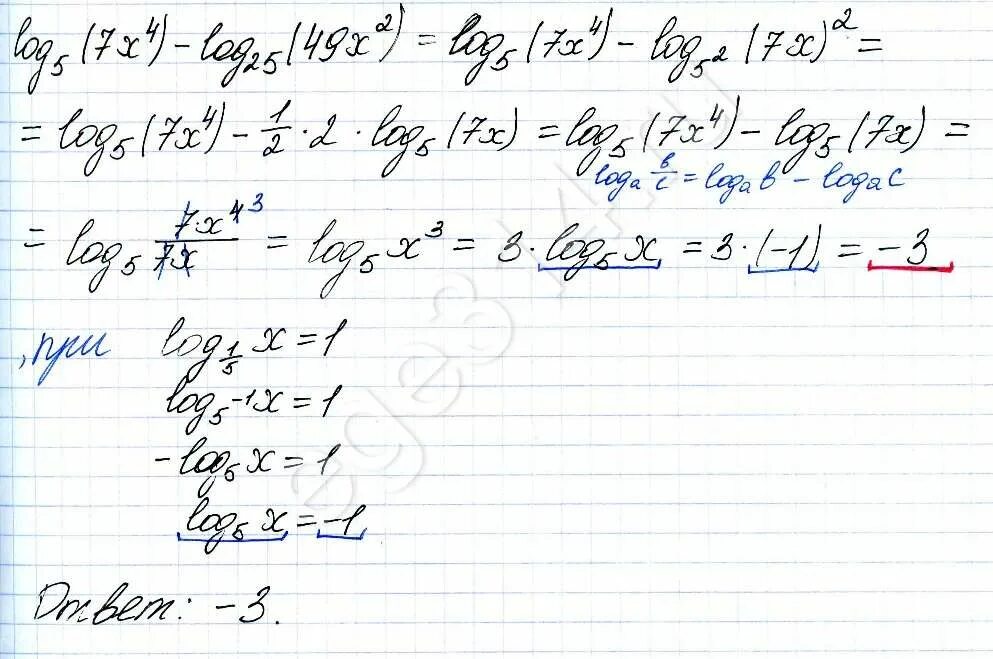 log₅(7x⁴) − log₂₅(49x²) = log₅(7x⁴) − log₅²(7x)² =
= log₅(7x⁴) − 1/2 · 2 · log₅(7x) = log₅(7x⁴) − log₅(7x) =
logₐ в/c = logₐ в − logₐ c
= log₅ 7·x⁴ ³/7x = log₅ x³ = 3 · log₅ x = 3 · (−1) = −3
, при log_1/5 x = 1
log₅⁻¹ x = 1
−log₅ x = 1
log₅ x = −1
Ответ: −3.
ege314.ru